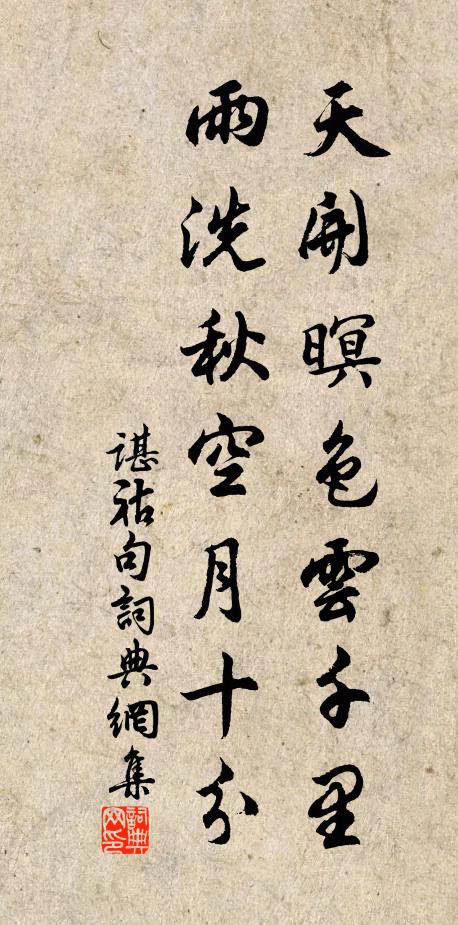 天開暝色雲千里
雨洗秋空月十分
諶祜句詞典網集
詞典網印